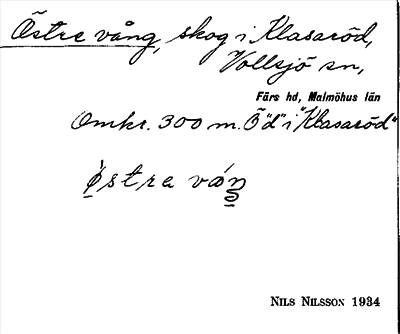 Östre vång, skog i Klasaröd,
Vollsjö sn,
Färs hd, Malmöhus län
Omkr. 300 m. Ö "d" i "Klasaröd"
östra
Nils Nilsson 1934